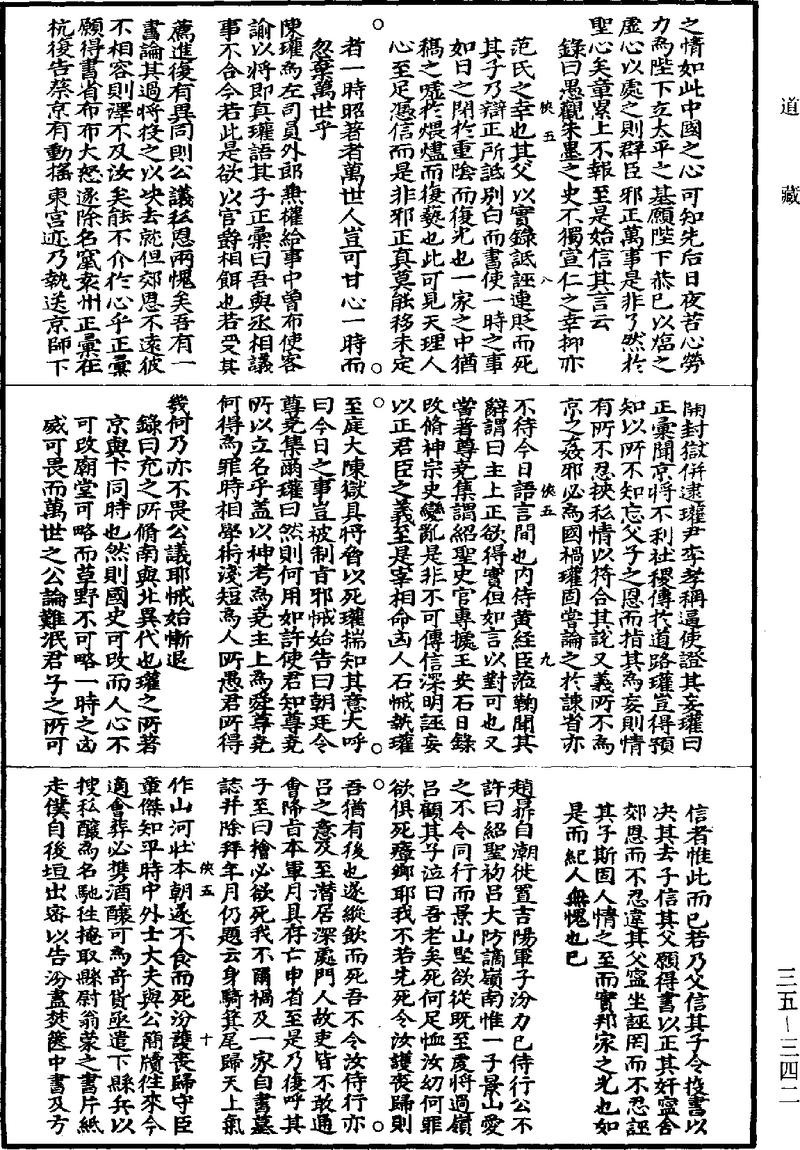 道藏
之情如此中國之心可知先后日夜苦心勞
力為陛下立太平之基願陛下恭已以臨之
虛心以處之則群臣邪正萬事是非了然於
聖心矣章累上不報至是始信其言云
錄曰愚觀朱墨之史不獨宣仁之幸抑亦
俠五 八
范氏之幸也其父以實錄詆誣連貶而死
其子乃辯正所誣別白而書使一時之事
如日之閉於重陰而復光也一家之中猶
稿之噓於煨燼而復蓺也此可見天理人
心至足憑信而是非邪正真莫能移未定
者一時昭著者萬世人豈可甘心一時而
忽棄萬世乎
陳瓘為左司員外郎兼權給事中曾布使客
諭以將即真瓘語其子正彙曰吾與丞相議
事不合今若此是欲以官爵相餌也若受其
薦進復有異同則公議私恩兩愧矣吾有一
書論其過將投之以決去就但郊恩不遠彼
不相容則澤不及汝矣能不介於心乎正彙
願得書省布布大怒遂除名竄袁州正彙在
杭復告蔡京有動搖東宮迹乃執送京師下
開封獄併逮瓘尹李孝稱逼使證其妄瓘曰
正彙聞京將不利社稷傳於道路瓘豈得預
知以所不知忘父子之恩而指其為妄則情
有所不忍挾私情以符合其說又義所不為
京之姦邪必為國禍瓘固嘗論之於諫省亦
俠五 九
不待今日語言間也內侍黃經臣蒞鞠聞其
辭謂曰主上正欲得實但如言以對可也又
嘗著尊堯集謂紹聖史官專據王安石日錄
改脩神宗史變亂是非不可傳信深明誣妄
以正君臣之義至是宰相命凶人石悈執瓘
至庭大陳獄具將脅以死瓘揣知其意大呼
曰今日之事豈被制旨邪悈始告曰朝廷令
尊堯集爾瓘曰然則何用如許使君知尊堯
所以立名乎蓋以神考為堯主上為舜尊堯
何得為罪時相學術淺短為人所愚君所得
幾何乃亦不畏公議耶悈始慚退
錄曰充之所脩南與北異代也瓘之所著
京與卞同時也然則國史可改而人心不
可改廟堂可略而草野不可略一時之凶
威可畏而萬世之公論難泯君子之所可
信者惟此而已若乃父信其子令投書以
決其去子信其父願得書以正其奸寧舍
郊恩而不忍違其父寧坐誣罔而不忍誣
其子斯固人情之至而實邦家之光也如
是而紀人無愧也已
趙鼎自潮徙置吉陽軍子汾力已侍行公不
許曰紹聖初呂大防謫嶺南惟一子景山愛
之不令同行而景山堅欲從既至虔將過嶺
呂顧其子泣曰吾老矣死何足恤汝幼何罪
欲俱死瘴鄉耶我不若先死令汝護喪歸則
吾猶有後也遂縱飲而死吾不令汝侍行亦
呂之意及至潛居深處門人故吏皆不敢通
會降旨本軍月具存亡申省至是乃復呼其
子至曰檜必欲死我不爾禍及一家自書墓
誌并除拜年月仍題云身騎箕尾歸天上氣
俠五 十
作山河壯本朝遂不食而死汾護喪歸守臣
章傑知平時中外士大夫與公簡牘往來今
適會葬必攜酒釀可為奇貨亟遣下縣兵以
搜私釀為名馳往掩取縣尉翁蒙之書片紙
走僕自後垣出密以告汾盡焚篋中書及方
三五—三四二